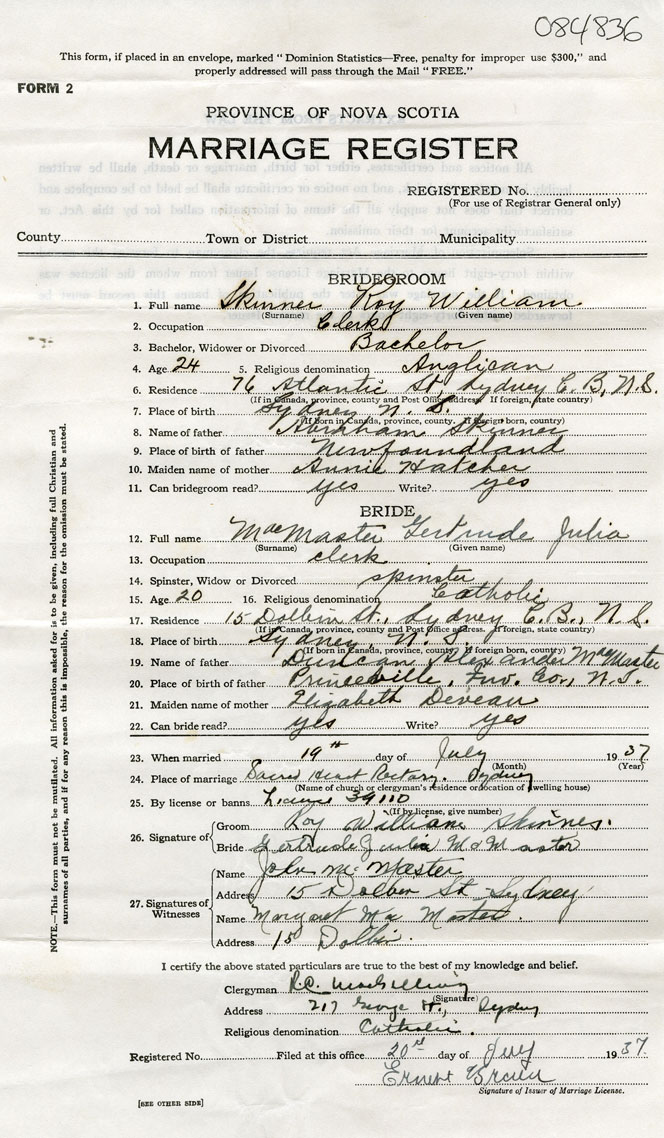 084836
This form, if placed in an envelope, marked " Dominion Statistics—Free, penalty for improper use $300," and
properly addressed will pass through the Mail " FREE."
FORM 2
PROVINCE OF NOVA SCOTIA
MARRIAGE REGISTER
REGISTERED No.
(For use of Registrar General only)
County Town or District Municipality
BRIDEGROOM
1. Full name Skinner Roy William
(Surname) (Given name)
2. Occupation Clerk
3. Bachelor, Widower or Divorced Bachelor
4. Age 24 5. Religious denomination Anglican
6. Residence 76 Atlantic St, Sydney C. B, N.S.
(If in Canada, province, county and Post Office address. If foreign, state country)
7. Place of birth Sydney N. S.
(If born in Canada, province, county. If foreign born, country)
8. Name of father Abraham Skinner
9. Place of birth of father Newfoundland
10. Maiden name of mother Annie Hatcher
11. Can bridegroom read? yes Write? yes
BRIDE
12. Full name MacMaster Gertrude Julia
(Surname) (Given name)
13. Occupation clerk
14. Spinster, Widow or Divorced spinster
15. Age 20 16. Religious denomination Catholic
17. Residence 15 Dolbin St., Sydney C.B., N.S.
(If in Canada, province, county and Post Office address. If foreign, state country)
18. Place of birth Sydney, N. S.
(If born in Canada, province, county. If foreign born, country)
19. Name of father Duncan Alexander MacMaster
20. Place of birth of father Princeville, Inv. Co., N.S.
21. Maiden name of mother Elizabeth Deveau
22. Can bride read? yes Write? yes
23. When married 19th day of July 1937
(Month) (Year)
24. Place of marriage Sacred Heart Rectory. Sydney
(Name of church or clergyman's residence or location of dwelling house)
25. By license or banns License 39110
(If by license, give number)
26. Signature of Groom Roy William Skinner.
Bride Gertrude Julia MacMaster
27. Signatures of Witnesses Name John McMaster
Address 15 Dolben St Sydney
Name Margaret MacMaster.
Address 15 Dolbin.
I certify the above stated particulars are true to the best of my knowledge and belief.
Clergyman R.C. MacGillivray
(Signature)
Address 217 George St., Sydney
Religious denomination Catholic.
Registered No. Filed at this office 20th day of July 1937.
Ernest
Signature of Issuer of Marriage License.
[SEE OTHER SIDE]
NOTE.—This form must not be mutilated. All information asked for is to be given, including full Christian and
surnames of all parties, and if for any reason this is impossible, the reason for the omission must be stated.